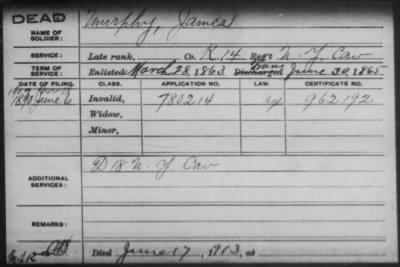 DEAD
NAME OF SOLDIER: Murphy, James
SERVICE: Late rank, Co. K 14 Reg't N. Y. Cav
TERM OF SERVICE: Enlisted March 28, 1863 Discharged June 30, 1865
DATE OF FILING. CLASS. APPLICATION NO. LAW. CERTIFICATE NO.
1890 June 6 Invalid, 780214 962192
Widow,
Minor,
ADDITIONAL SERVICES: D 18 N. Y. Cav
REMARKS:
Died June 17, 1913, at